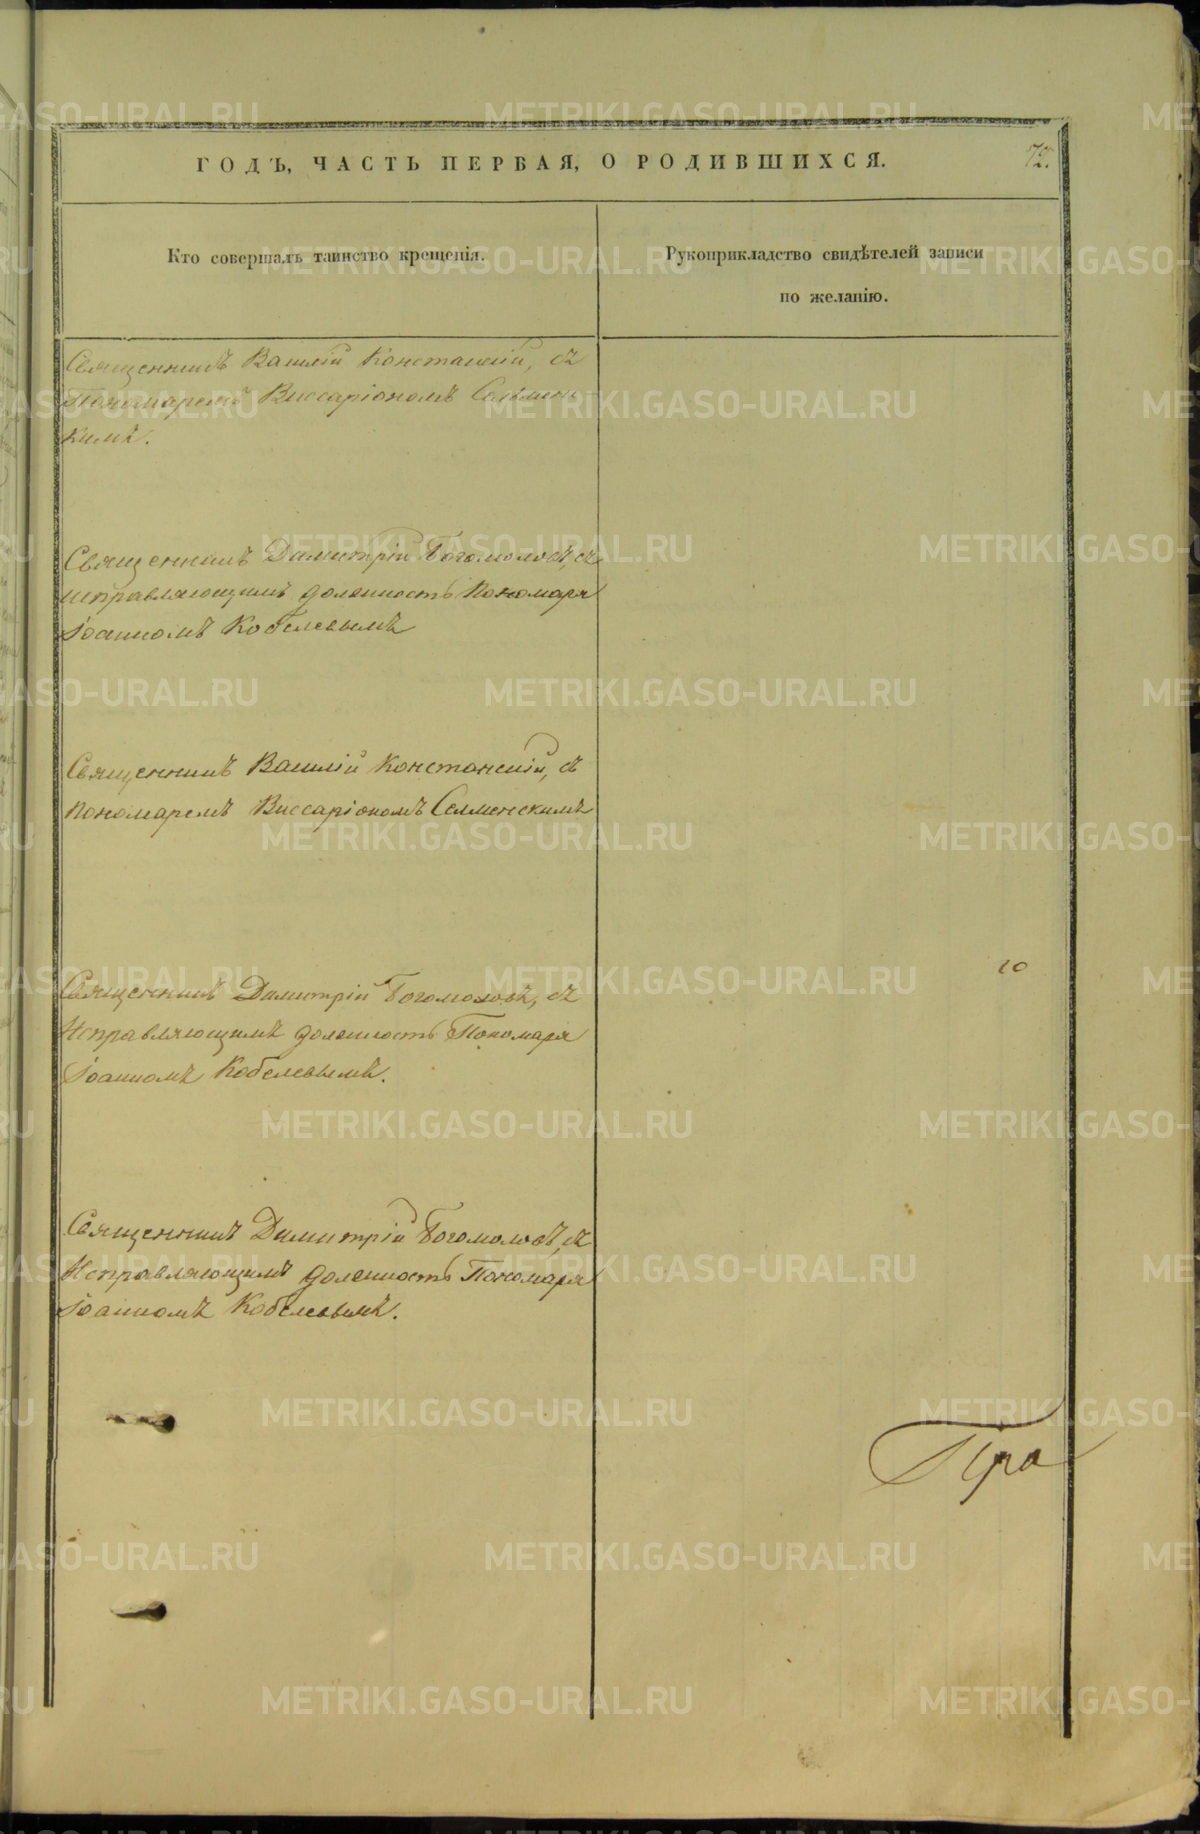 ГОДЪ, ЧАСТЬ ПЕРВАЯ, О РОДИВШИХСЯ.
72.
Кто совершалъ таинство крещенія.
Рукоприкладство свидѣтелей записи
по желанію.
Священникъ Василій Констанскій, съ
Пономаремъ Виссаріономъ Селменс-
кимъ.
Священникъ Димитрій Богомоловъ, съ
исправляющимъ должность Пономаря
Іоанномъ Кобелевымъ
Священникъ Василій Констанскій, съ
Пономаремъ Виссаріономъ Селменскимъ
10
Священникъ Димитрій Богомоловъ, съ
Исправляющимъ должность Пономаря
Іоанномъ Кобелевымъ.
Священникъ Димитрій Богомоловъ, съ
Исправляющимъ должность Пономаря
Іоанномъ Кобелевымъ.
Пра
METRIKI.GASO-URAL.RU